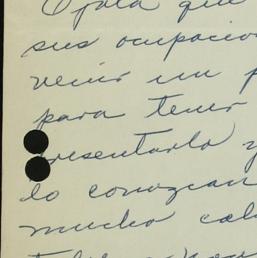 Ojala que
sus ocupacio
venir un p
para tener
presentarlo y
lo conozcan
mucho cal